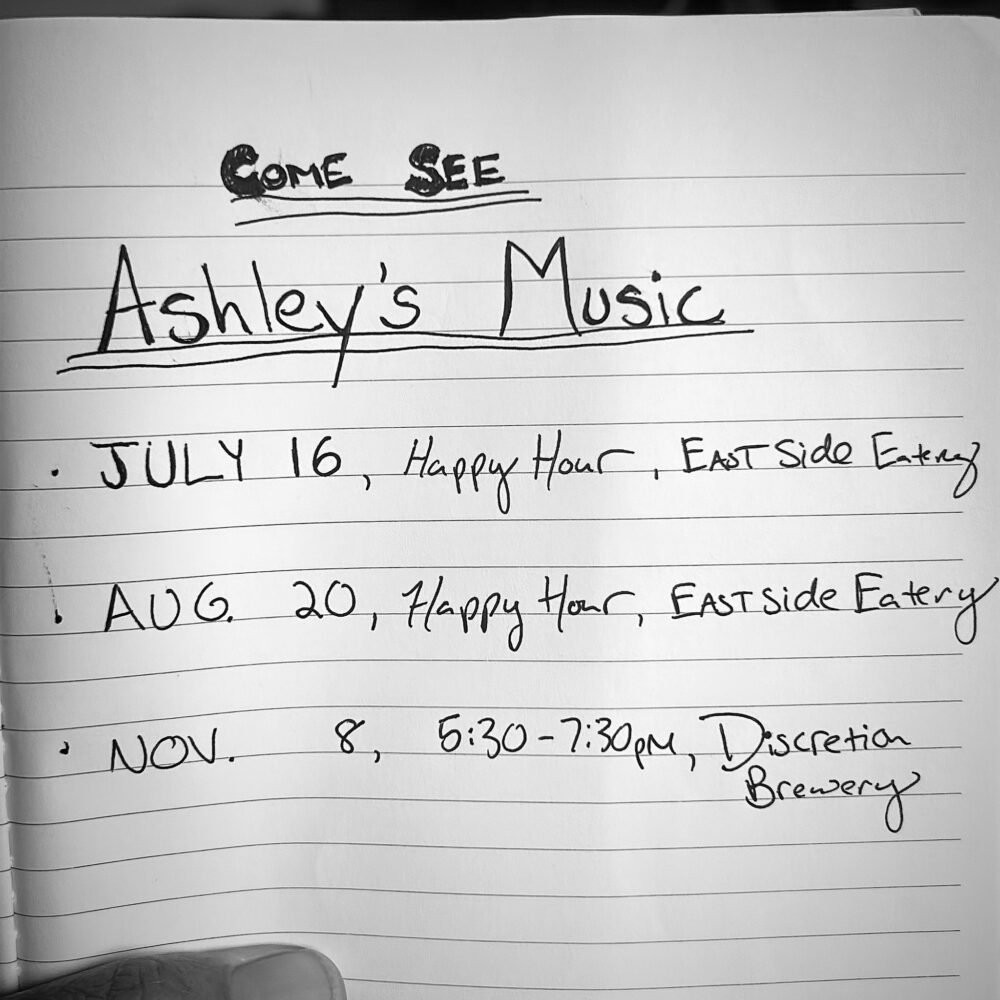 COME SEE
Ashley's Music
· JULY 16, Happy Hour, EAST Side Eatery
· AUG. 20, Happy Hour, EAST Side Eatery
· NOV. 8, 5:30-7:30pm, Discretion
Brewery